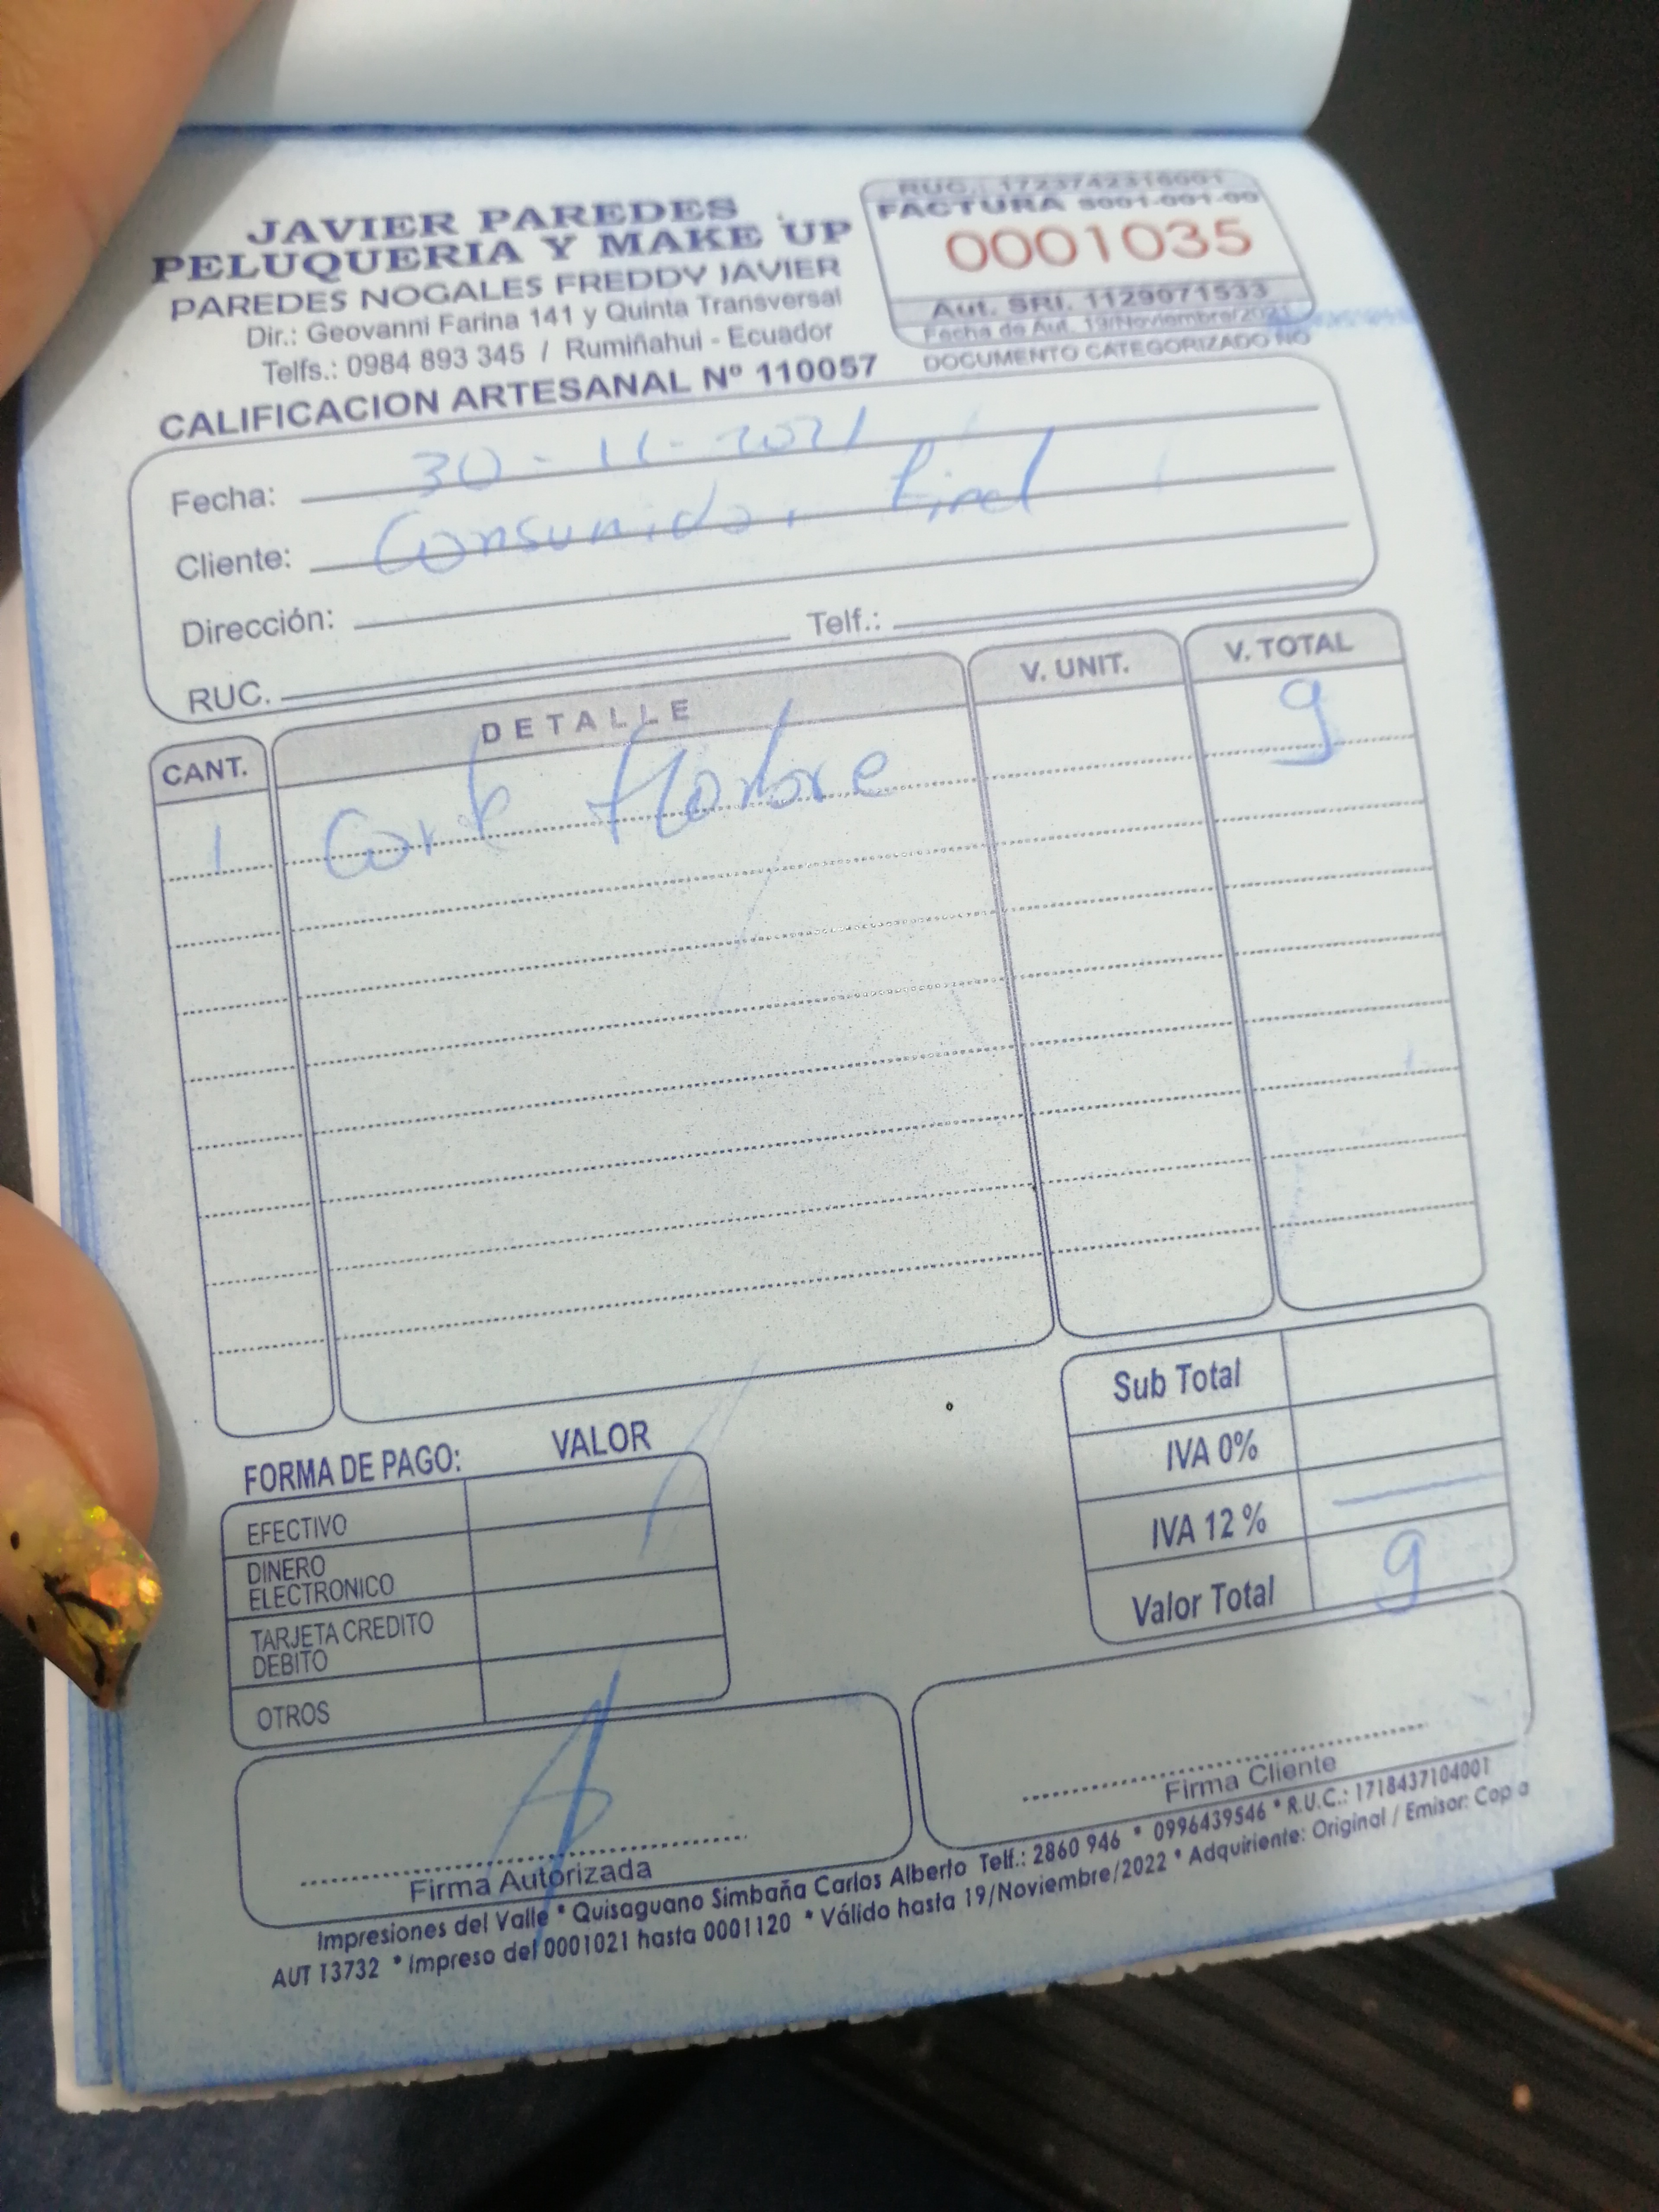 JAVIER PAREDES
PELUQUERIA Y MAKE UP
PAREDES NOGALES FREDDY JAVIER
Dir.: Geovanni Farina 141 y Quinta Transversal
Telfs.: 0984 893 345 / Rumiñahui - Ecuador
CALIFICACION ARTESANAL Nº 110057
RUC.: 1723742316001
FACTURA S001-001-00
0001035
Aut. SRI. 1129071533
Fecha de Aut. 19/Noviembre/2021
DOCUMENTO CATEGORIZADO NO
Fecha: 30-11-2021
Cliente: Consumidor final
Dirección:
RUC. Telf.:
CANT. DETALLE V. UNIT. V. TOTAL
1 Corte Hombre 9
Sub Total
IVA 0%
IVA 12 %
Valor Total 9
FORMA DE PAGO: VALOR
EFECTIVO
DINERO
ELECTRONICO
TARJETA CREDITO
DEBITO
OTROS
Firma Autorizada
Firma Cliente
Impresiones del Valle * Quisaguano Simbaña Carlos Alberto Telf.: 2860 946 * 0996439546 * R.U.C.: 1718437104001
AUT 13732 * Impreso del 0001021 hasta 0001120 * Válido hasta 19/Noviembre/2022 * Adquiriente: Original / Emisor: Copia